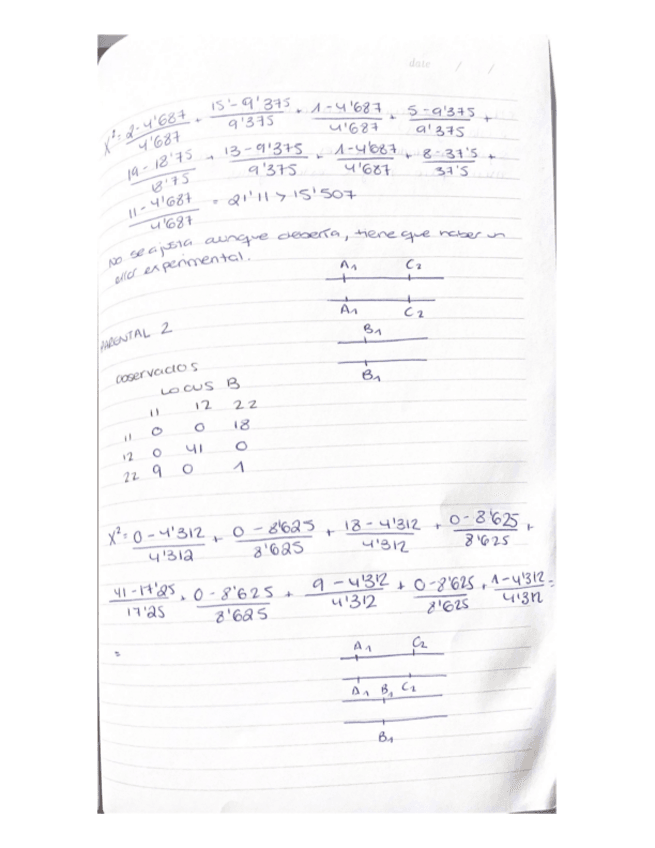 date / /
X² = 2-4'687/4'687 + 15'-9'375/9'375 + 1-4'687/4'687 + 5-9'375/9'375 +
19-18'75/18'75 + 13-9'375/9'375 + 1-4'687/4'687 + 8-37'5/37'5 +
11-4'687/4'687 = 21'11 > 15'507
No se ajusta aunque debería, tiene que haber un
error experimental.
A1 C2
A1 C2
B1
B1
PARENTAL 2
observados
LOCUS B
11 12 22
11 0 0 18
12 0 41 0
22 9 0 1
X² = 0-4'312/4'312 + 0-8'625/8'625 + 18-4'312/4'312 + 0-8'625/8'625 +
41-17'25/17'25 + 0-8'625/8'625 + 9-4'312/4'312 + 0-8'625/8'625 + 1-4'312/4'312 =
=
A1 C2
A1 B1 C2
B1